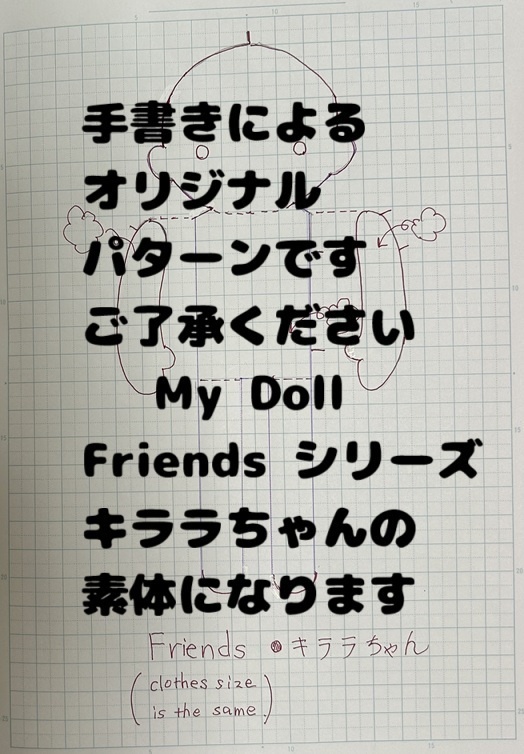 手書きによる
オリジナル
パターンです
ご了承ください
My Doll
Friends シリーズ
キララちゃんの
素体になります
Friends ●キララちゃん
(clothes size
is the same.)